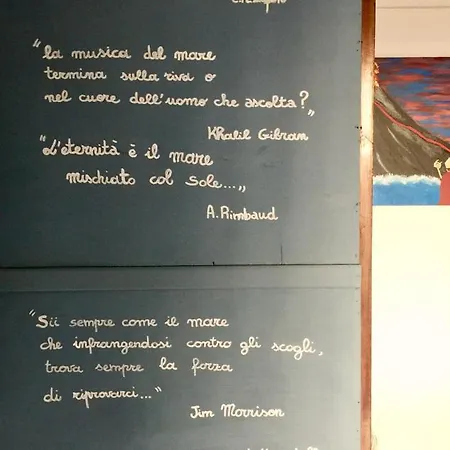 "la musica del mare
termina sulla riva o
nel cuore dell'uomo che ascolta?"
Khalil Gibran
"L'eternità è il mare
mischiato col sole..."
A. Rimbaud
"Sii sempre come il mare
che infrangendosi contro gli scogli,
trova sempre la forza
di riprovarci..."
Jim Morrison